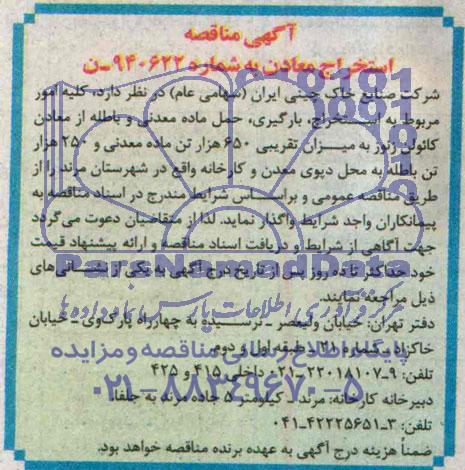 آگهی مناقصه
استخراج معادن به شماره ۹۴۰۶۲۲-ن
شرکت صنایع خاک چینی ایران (سهامی عام) در نظر دارد، کلیه امور
مربوط به استخراج، بارگیری، حمل ماده معدنی و باطله از معادن
کائولن زنوز به میزان تقریبی ۶۵۰ هزار تن ماده معدنی و ۲۵۰ هزار
تن باطله به محل دپوی معدن و کارخانه واقع در شهرستان مرند را از
طریق مناقصه عمومی و براساس شرایط مندرج در اسناد مناقصه به
پیمانکاران واجد شرایط واگذار نماید. لذا از متقاضیان دعوت می‌گردد
جهت آگاهی از شرایط و دریافت اسناد مناقصه و ارائه پیشنهاد قیمت
خود حداکثر تا ده روز پس از تاریخ درج آگهی به یکی از نشانی‌های
ParsNamadData
ذیل مراجعه نمایند.
مرکز فرآوری اطلاعات پارس نماد داده‌ها
دفتر تهران: خیابان ولیعصر - نرسیده به چهارراه پارک‌وی - خیابان
خاکزاد - شماره ۲۱ - طبقه اول و دوم
پایگاه اطلاع رسانی مناقصه و مزایده
تلفن: ۹-۲۲۰۱۸۱۰۷-۰۲۱ داخلی ۴۱۵ و ۴۲۵
۰۲۱-۸۸۳۴۹۶۷۰-۵
دبیرخانه کارخانه: مرند - کیلومتر ۵ جاده مرند به جلفا.
تلفن: ۳-۴۲۲۲۵۶۵۱-۰۴۱
ضمناً هزینه درج آگهی به عهده برنده مناقصه خواهد بود.